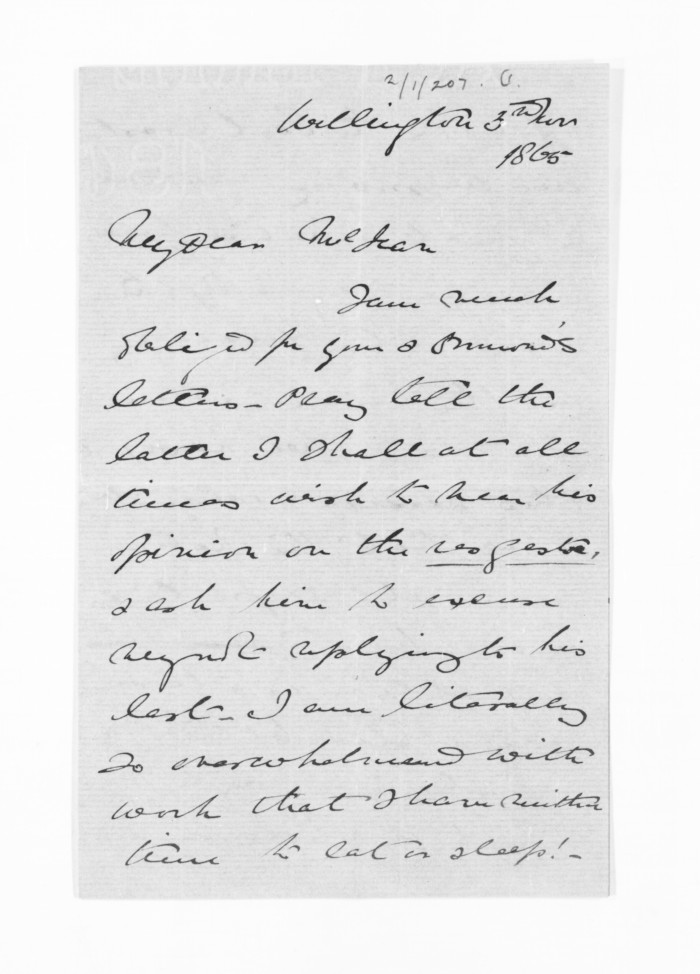 2/1/207.
Wellington 3rd Nov
1865
My Dear McLean
I am much
obliged for your & Ormond's
letters - Pray tell the
latter I shall at all
times wish to hear his
opinion on the res gestae,
& ask him to excuse
my not replying to his
last - I am literally
so overwhelmed with
work that I have neither
time to eat or sleep! -